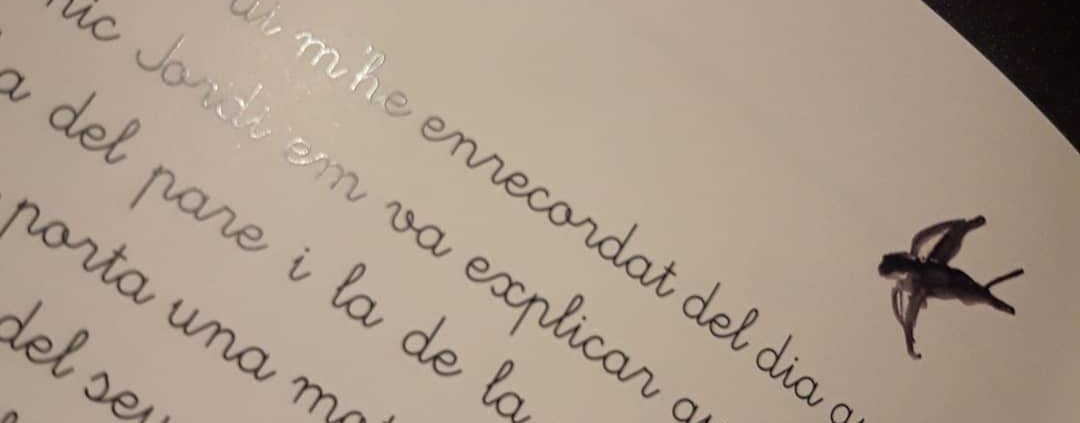 m'he enrecordat del dia
Jordi em va explicar
a del pare i la de la
porta una
del